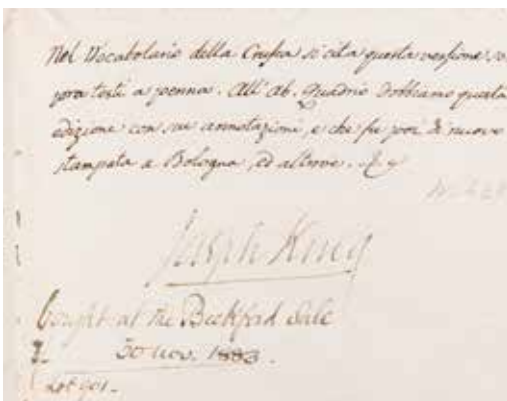 Nel Vocabolario della Crusca si cita questa versione so
pra testi a penna. All'Ab. Quadrio dobbiamo questa
edizione con sue annotazioni, e che fu poi di nuovo
stampata a Bologna, ed altrove.
Joseph King
bought at the Beckford Sale
30 Nov. 1883.
Lot 901.